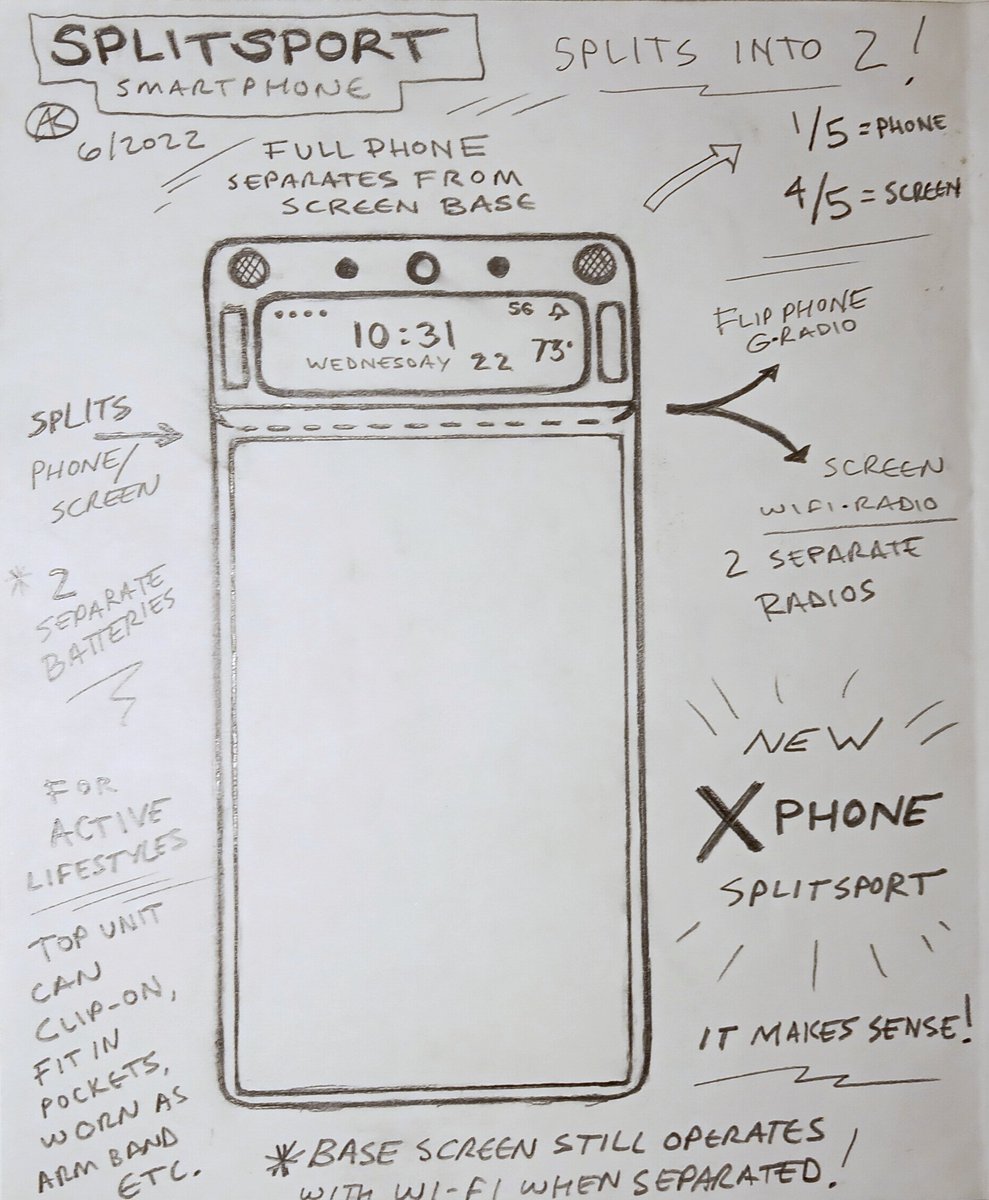 SPLITSPORT
SMARTPHONE
AK
6/2022
SPLITS INTO 2!
1/5 = PHONE
4/5 = SCREEN
FULL PHONE
SEPARATES FROM
SCREEN BASE
5G
10:31
WEDNESDAY 22
73°
FLIP PHONE
G-RADIO
SPLITS
PHONE/
SCREEN
SCREEN
WIFI-RADIO
2 SEPARATE
RADIOS
* 2
SEPARATE
BATTERIES
NEW
X PHONE
SPLITSPORT
IT MAKES SENSE!
FOR
ACTIVE
LIFESTYLES
TOP UNIT
CAN
CLIP-ON,
FIT IN
POCKETS,
WORN AS
ARM BAND
ETC.
* BASE SCREEN STILL OPERATES
WITH WI-FI WHEN SEPARATED!